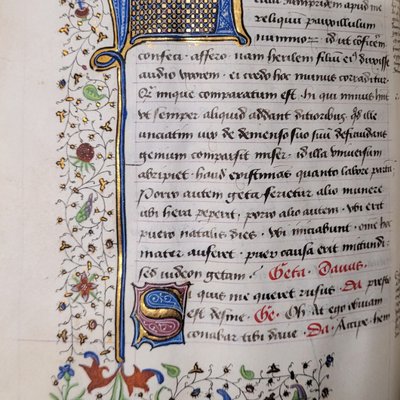 reliqui pauxillulum
nummoꝝ · id ut cōficerē
confeci · affero · nam herilem filiū ei⁹ duxisse
audio vxorem · ei credo hoc munus corraditur
ꝙ inique comparatum est · hi qui minus
vt semper aliquid addant ditioribus · qd ille
unciatim uix de demenso suo suū defraudans
genium comparsit miser · id illa vniuersum
abripiet · haud existimās quanto labore
Porro autem geta ferietur alio munere
vbi hera peperit · porro alio autem · vbi erit
puero natalis dies · Vbi iniciabunt · omne hoc
mater auferet · puer causa erit mittundi ·
sed videon getam · Geta · Dauus ·
Si quis me queret rufus · Da preſto
est desine · Ge · Oh At ego obuiam
conabar tibi daue · Da · Accipe · hem